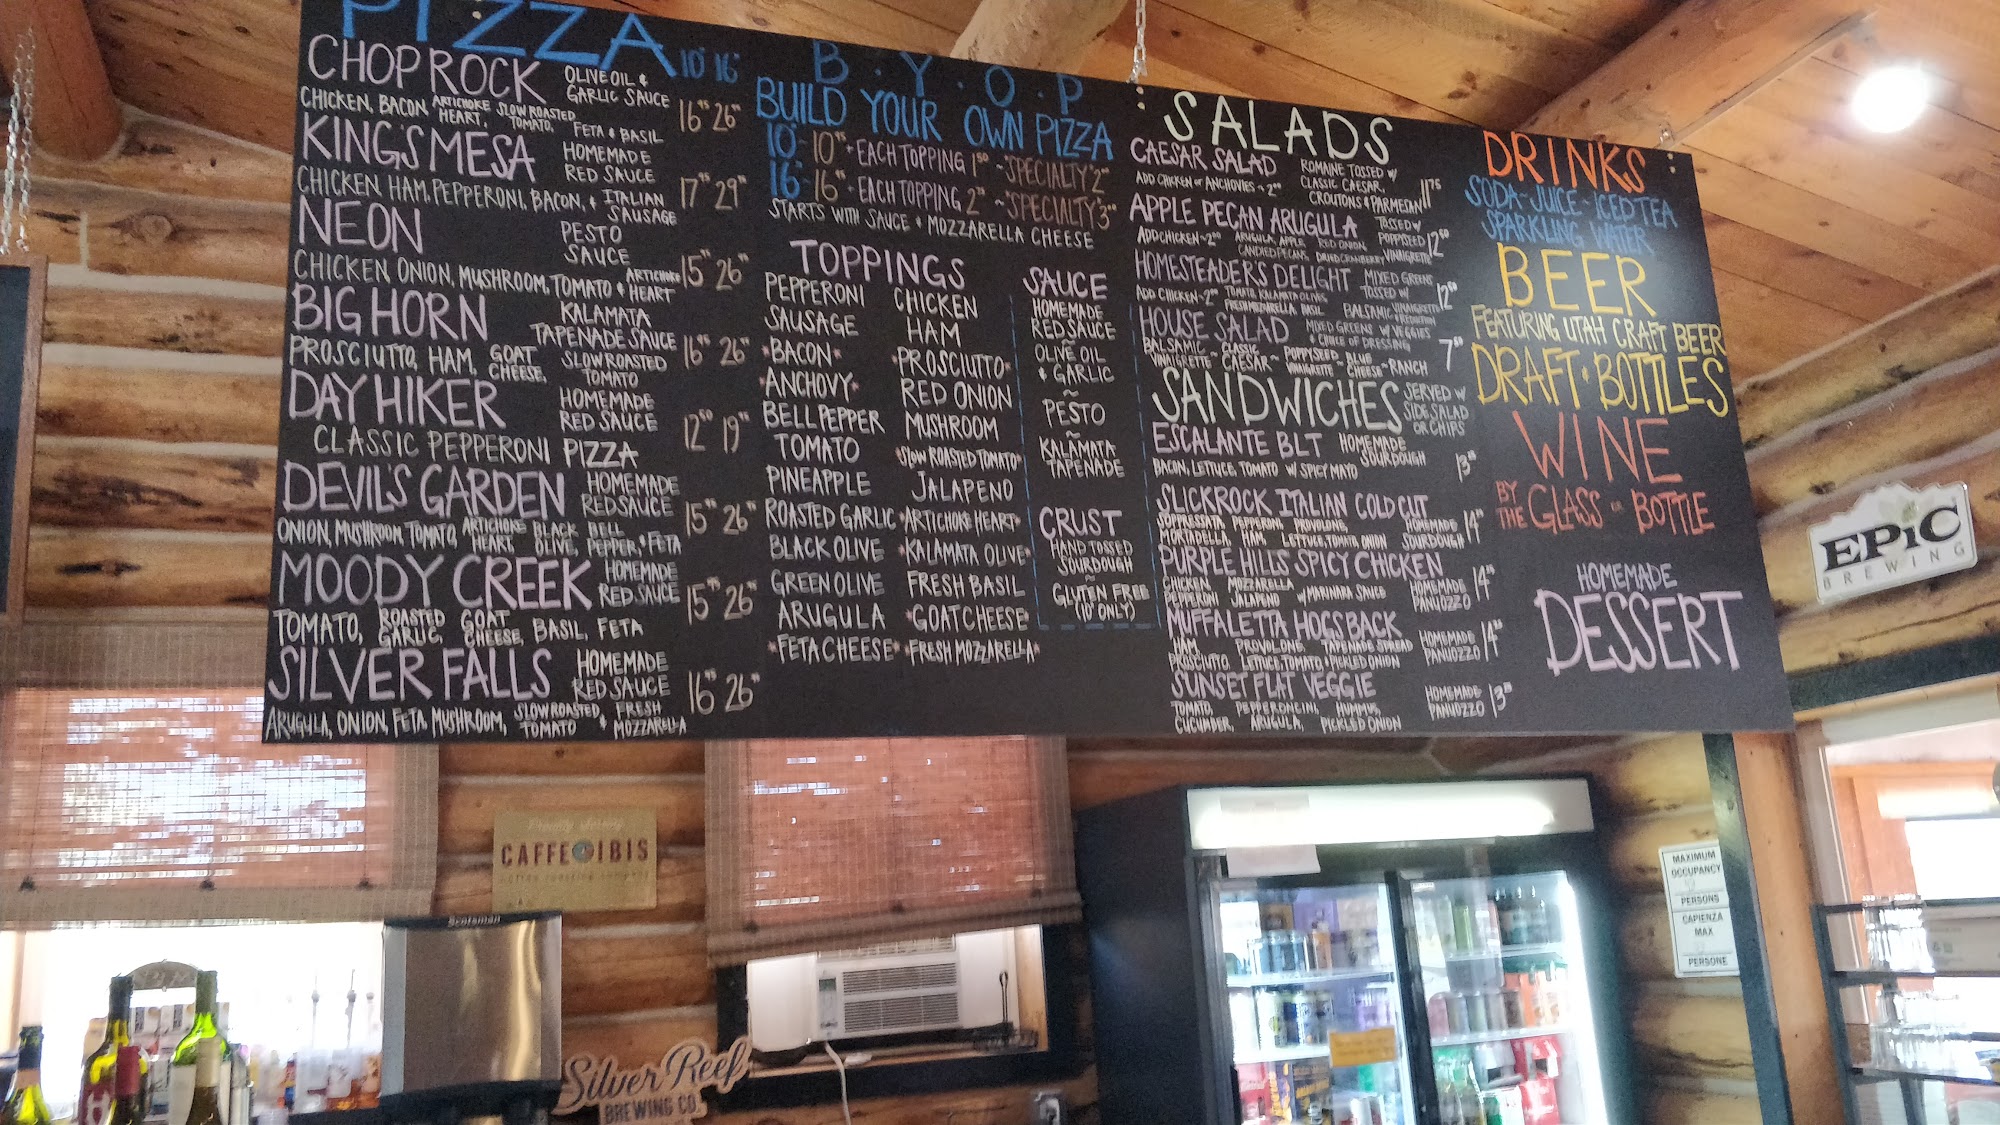 PIZZA 10" 16"
CHOP ROCK OLIVE OIL & GARLIC SAUCE
CHICKEN, BACON, ARTICHOKE HEART, SLOW ROASTED TOMATO, FETA & BASIL 16 26
KING'S MESA HOMEMADE RED SAUCE
CHICKEN, HAM, PEPPERONI, BACON, & ITALIAN SAUSAGE 17 29
NEON PESTO SAUCE
CHICKEN, ONION, MUSHROOM, TOMATO & ARTICHOKE HEART 15 26
BIG HORN KALAMATA TAPENADE SAUCE
PROSCIUTTO, HAM, GOAT CHEESE, SLOW ROASTED TOMATO 16 26
DAY HIKER HOMEMADE RED SAUCE
CLASSIC PEPPERONI PIZZA 12 19
DEVIL'S GARDEN HOMEMADE RED SAUCE
ONION, MUSHROOM, TOMATO, ARTICHOKE HEART, BLACK OLIVE, BELL PEPPER, & FETA 15 26
MOODY CREEK HOMEMADE RED SAUCE
TOMATO, ROASTED GARLIC, GOAT CHEESE, BASIL, FETA 15 26
SILVER FALLS HOMEMADE RED SAUCE
ARUGULA, ONION, FETA, MUSHROOM, SLOW ROASTED TOMATO & FRESH MOZZARELLA 16 26
B.Y.O.P
BUILD YOUR OWN PIZZA
10" ~ 10 + EACH TOPPING 1 ~ *SPECIALTY* 2
16" ~ 16 + EACH TOPPING 2 ~ *SPECIALTY* 3
STARTS WITH SAUCE & MOZZARELLA CHEESE
TOPPINGS
PEPPERONI
SAUSAGE
*BACON*
*ANCHOVY*
BELL PEPPER
TOMATO
PINEAPPLE
ROASTED GARLIC
BLACK OLIVE
GREEN OLIVE
ARUGULA
*FETA CHEESE*
CHICKEN
HAM
*PROSCIUTTO*
RED ONION
MUSHROOM
*SLOW ROASTED TOMATO*
JALAPENO
*ARTICHOKE HEART*
*KALAMATA OLIVE*
FRESH BASIL
*GOAT CHEESE*
*FRESH MOZZARELLA*
SAUCE
HOMEMADE
RED SAUCE
~
OLIVE OIL
& GARLIC
~
PESTO
~
KALAMATA
TAPENADE
CRUST
HAND TOSSED
SOURDOUGH
~
GLUTEN FREE
(10" ONLY)
SALADS
CAESAR SALAD ROMAINE TOSSED W/ CLASSIC CAESAR, CROUTONS & PARMESAN 11
ADD CHICKEN or ANCHOVIES ~ 2
APPLE PECAN ARUGULA TOSSED W/ POPPYSEED VINAIGRETTE 12
ADD CHICKEN ~ 2 ARUGULA, APPLE, RED ONION, CANDIED PECANS, DRIED CRANBERRY
HOMESTEADER'S DELIGHT MIXED GREENS TOSSED W/ BALSAMIC VINAIGRETTE 12
ADD CHICKEN ~ 2 TOMATO, KALAMATA OLIVES, FRESH MOZZARELLA, BASIL
HOUSE SALAD MIXED GREENS W/ VEGGIES & CHOICE OF DRESSING 7
BALSAMIC VINAIGRETTE ~ CLASSIC CAESAR ~ POPPYSEED VINAIGRETTE ~ BLUE CHEESE ~ RANCH
SANDWICHES SERVED W/ SIDE SALAD OR CHIPS
ESCALANTE BLT HOMEMADE SOURDOUGH 13
BACON, LETTUCE, TOMATO W/ SPICY MAYO
SLICKROCK ITALIAN COLD CUT
SOPPRESSATA, PEPPERONI, PROVOLONE, MORTADELLA, HAM, LETTUCE, TOMATO, ONION HOMEMADE SOURDOUGH 14
PURPLE HILLS SPICY CHICKEN
CHICKEN, MOZZARELLA, PEPPERONI, JALAPENO W/ MARINARA SAUCE HOMEMADE PANUOZZO 14
MUFFALETTA HOGSBACK
HAM, PROVOLONE, TAPENADE SPREAD PROSCIUTTO, LETTUCE, TOMATO & PICKLED ONION HOMEMADE PANUOZZO 14
SUNSET FLAT VEGGIE HOMEMADE PANUOZZO 13
TOMATO, PEPPERONCINI, HUMMUS, CUCUMBER, ARUGULA, PICKLED ONION
DRINKS
SODA ~ JUICE ~ ICED TEA
SPARKLING WATER
BEER
FEATURING UTAH CRAFT BEER
DRAFT & BOTTLES
WINE
BY THE GLASS or BOTTLE
HOMEMADE
DESSERT
EPIC
BREWING
Proudly serving
CAFFE IBIS
coffee roasting company
Scotsman
Silver Reef
BREWING CO.
MAXIMUM
OCCUPANCY
PERSONS
CAPIENZA
MAX
PERSONE